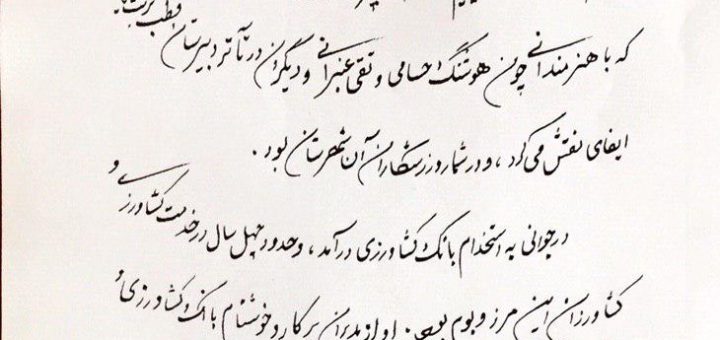 که با هنرمندانی چون هوشنگ حسامی و تقی عنبرانی و دیگران در تآتر دبیرستان قطب
ایفای نقش می‌کرد ، و در شمار ورزشکاران آن شهرستان بود .
در جوانی به استخدام بانک کشاورزی درآمد ، و حدود چهل سال در خدمت کشاورزی و
کشاورزان این مرز و بوم بود . او از مدیران پرکار و خوشنام بانک کشاورزی